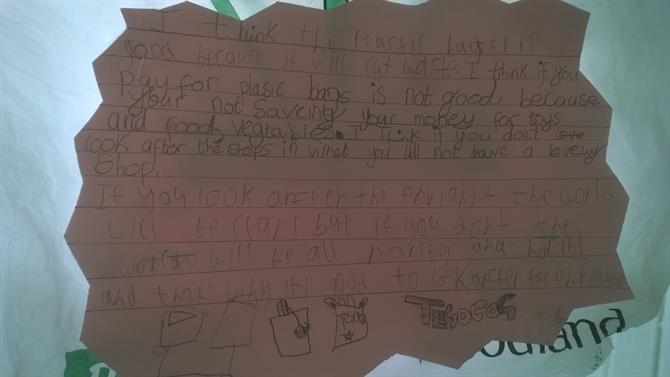 I think the bags is
good because it will cut waste. I think if you
Pay for plasic bags is not good because
your not Saveing your money for toys
and food, vegtables. I think if you don't
look after the in you will not have a lovely
Shop.
If you look arfter the the world
will be but if you dont the
world will be all narsty and
and thats why its good to look after the
TESCOS